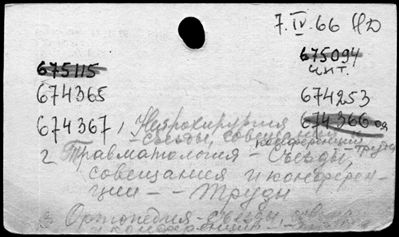 7.IV.66 НД
675115 675094
чит.
674365 674253
674367, 674366
1 Нейрохирургия -
съезды, совещания и
конференции - труды
2 Травматология - Съезды,
совещания и конферен-
ции - - Труды
3 Ортопедия - Съезды,
и конференции